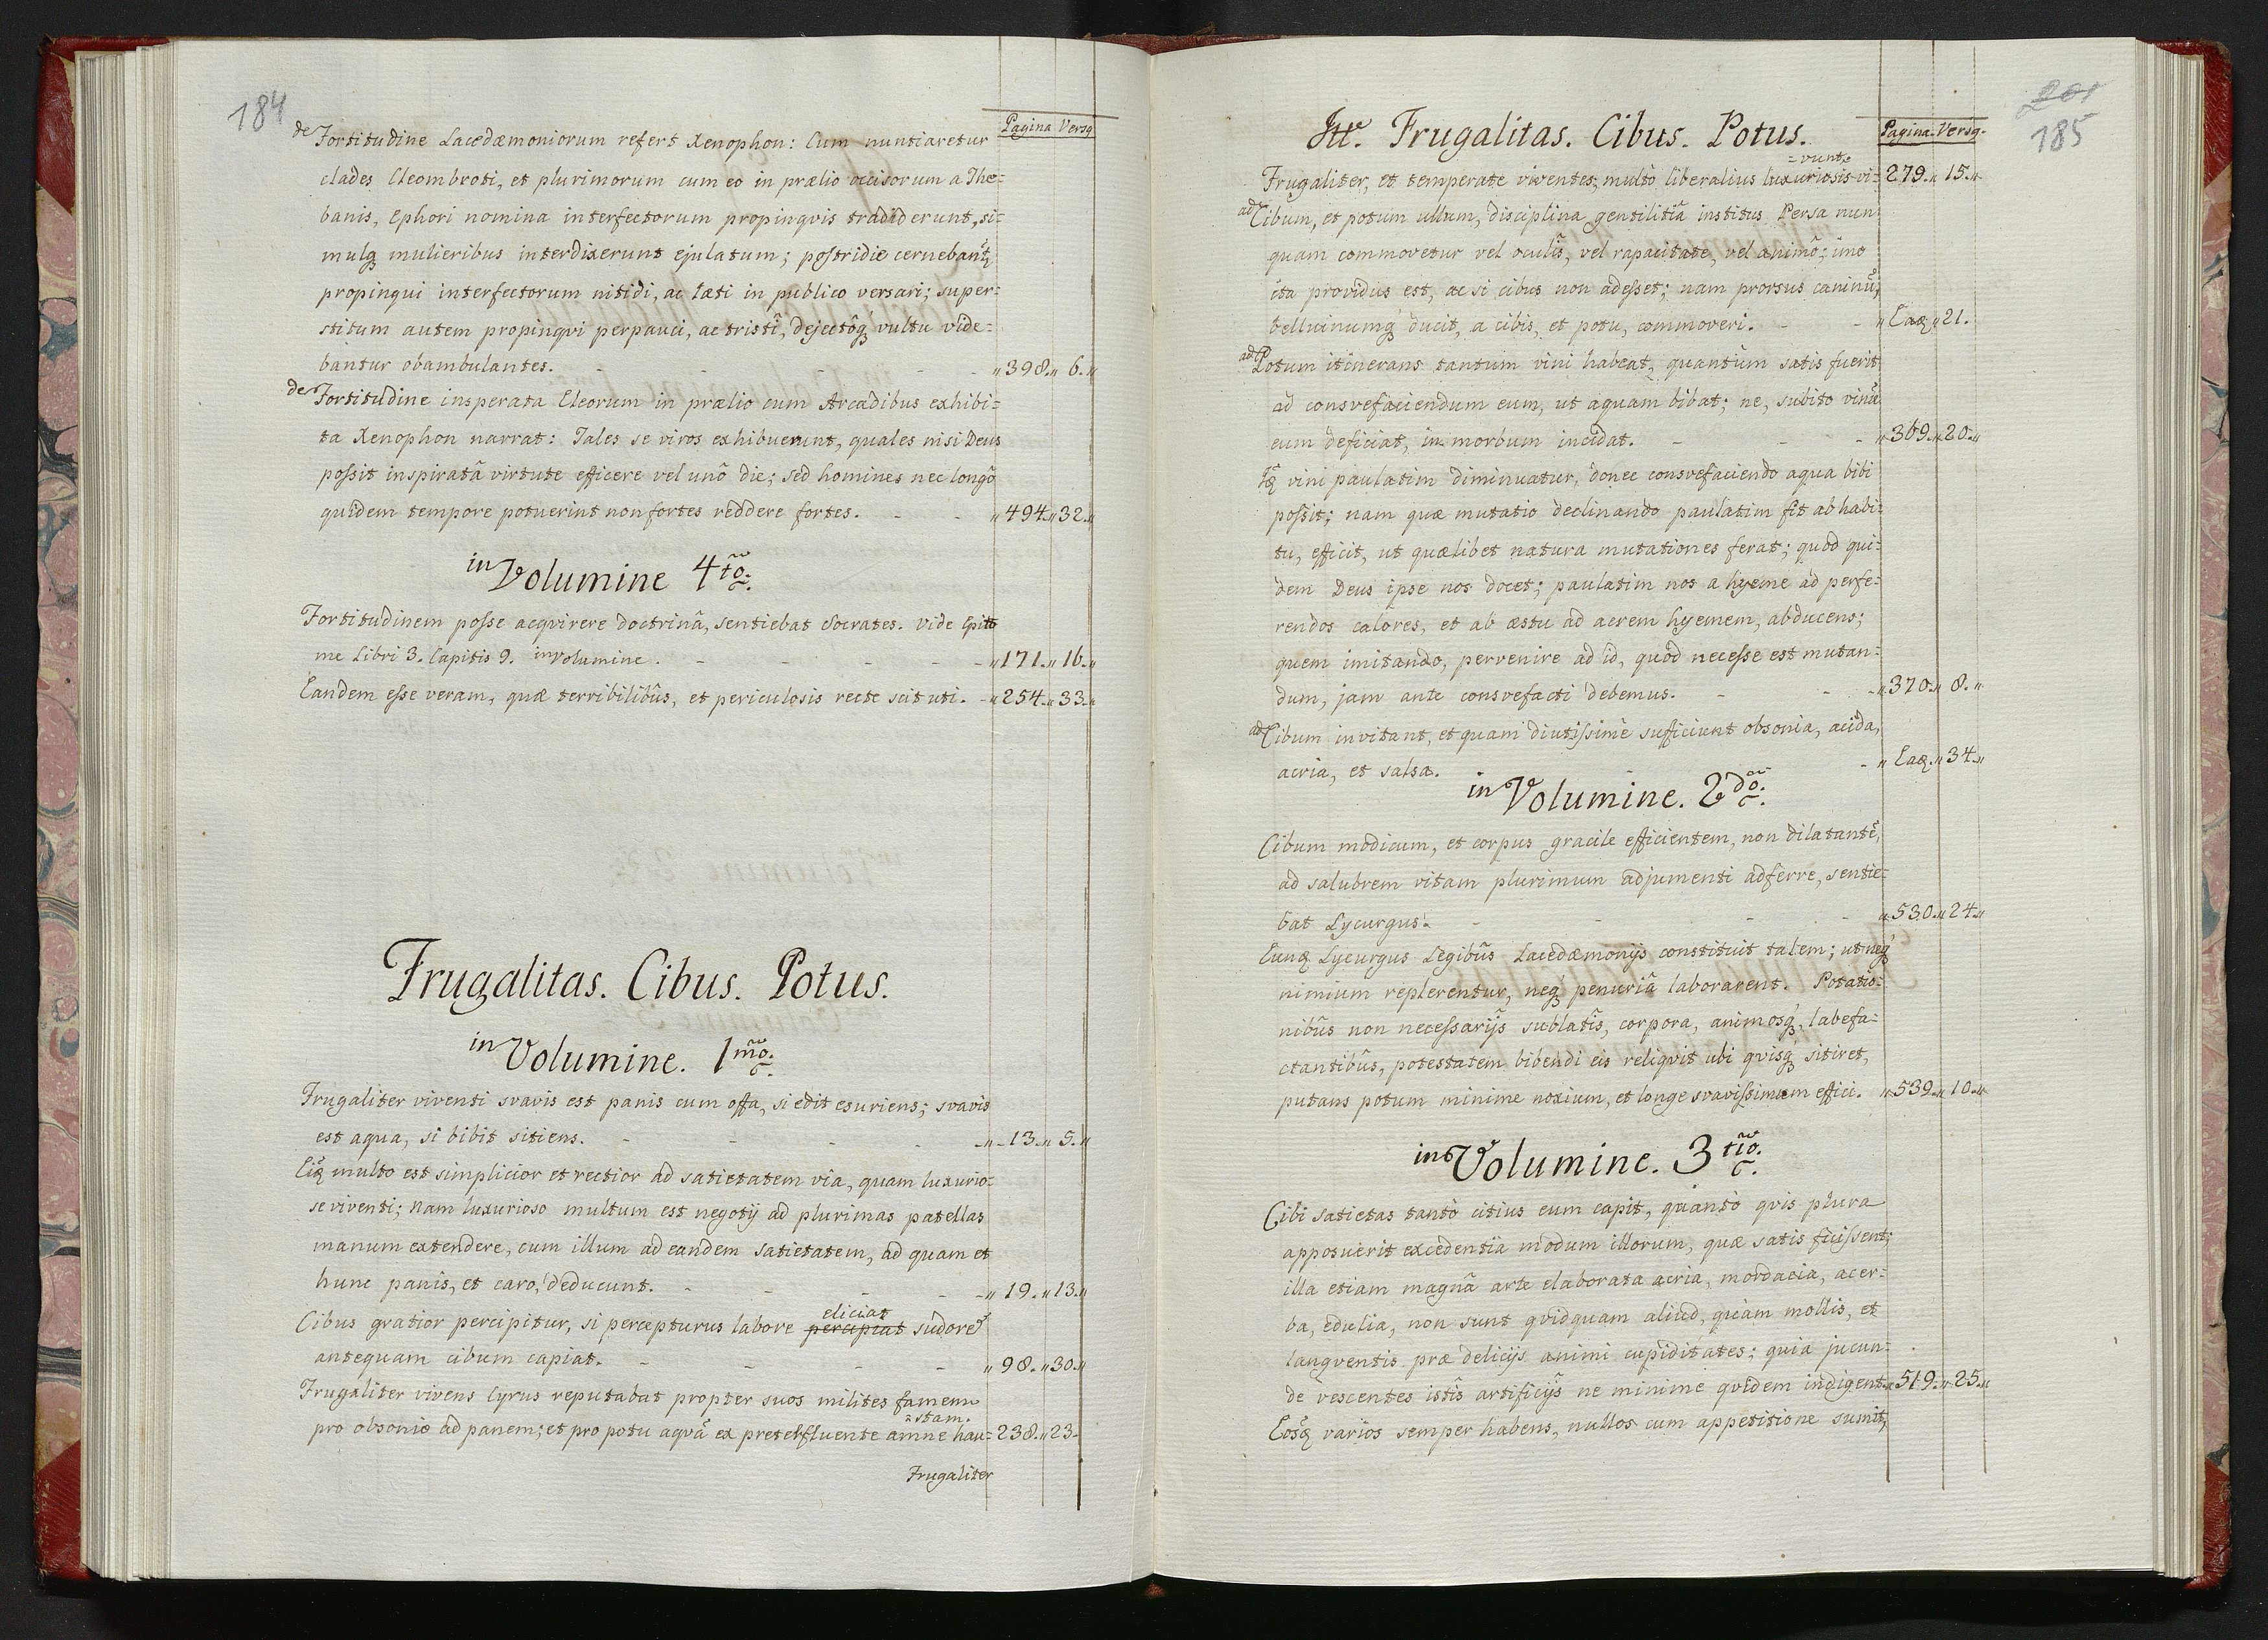 184
Pagina Versq
de Fortitudine Lacedæmoniorum refert Xenophon: Cum nuntiaretur
clades Cleombroti, et plurimorum cum eo in prælio occisorum a The=
banis, Ephori nomina interfectorum propinqvis tradiderunt, si=
mulq mulieribus interdixerunt ejulatum; postridie cernebant,
propinqui interfectorum nitidi, ac læti in publico versari; super=
stitum autem propinqvi perpauci, ac tristi, dejectôq vultu vide=
bantur obambulantes. - - - - - „398.„ 6.„
de Fortitudine insperata Eleorum in prælio cum Arcadibus exhibi=
ta Xenophon narrat: Tales se viros exhibuerunt, quales nisi Deus
possit inspiratâ virtute efficere vel unô die; sed homines nec longô
quidem tempore potuerint non fortes reddere fortes. - - „494.„32.„
in Volumine 4to.
Fortitudinem posse acqvirere doctrinâ, sentiebat Socrates. vide Epito
me Libri 3. Capitis 9. in volumine. - - - - - „171.„ 16.„
Eandem esse veram, quæ terribilibûs, et periculosis recte scit uti. - „254.„33.„
Frugalitas. Cibus. Potus.
in Volumine. 1mo.
Frugaliter viventi svavis est panis cum offa, si edit esuriens; svavis
est aqua, si bibit sitiens. - - - - „ 13.„ 5.„
Eiq multo est simplicior et rectior ad satietatem via, quam luxurio=
se viventi; nam luxurioso multum est negotij ad plurimas patellas
manum extendere, cum illum ad eandem satietatem, ad quam et
hunc panis, et caro, deducunt. - - - - „ 19.„13.„
eliciat
Cibus gratior percipitur, si percepturus labore percipiat sudorê
antequam cibum capiat. - - - - „ 98.„30.„
Frugaliter vivens Cyrus reputabat propter suos milites famem
=stam.
pro obsonio ad panem; et pro potu aqvâ ex preterfluente amne hau= 238.„23.
Frugaliter
201
185
Itê. Frugalitas. Cibus. Potus. Pagina. Versq.
=vunt.
Frugaliter, et temperate viventes, multò liberalius luxuriosis vi= 279.„ 15.„
ad Cibum, et potum ullum, disciplina gentilitiâ institus Persa nun
quam commovetur vel oculîs, vel rapacitate, vel animô; imo
ita providus est, ac si cibus non adesset; nam prorsus caninû,
belluinumq ducit, a cibis, et potu, commoveri. - - „ Eaq „21.
ad Potum itinerans tantum vini habeat, quantum satis fuerit
ad consvefaciendum eum, ut aquam bibat; ne, subito vinû
eum deficiat, in morbum incidat. - - - „369.„20.„
Iq vini paulatim diminuatur, donec consvefaciendo aqua bibi
possit; nam quæ mutatio declinando paulatim fit ab habi=
tu, efficit, ut quælibet natura mutationes ferat; quod qui=
dem Deus ipse nos docet; paulatim nos a hyeme ad perfe=
rendos calores, et ab æstu ad acrem hyemem, abducens;
quem imitando, pervenire ad id, quod necesse est mutan=
dum, jam ante consvefacti debemus. - - - „370.„ 8.„
ad Cibum invitant, et quam diutissimè sufficiunt obsonia, acida,
acria, et salsa. - „ Eaq.„34.„
in Volumine. 2do.
Cibum modicum, et corpus gracile efficientem, non dilatantê,
ad salubrem vitam plurimum adjumenti adferre, sentie=
bat Lycurgus. - - - - „530.„24.„
Eunq Lycurgus Legibûs Lacedæmonijs constituit talem; ut neq
nimium replerentur, neq penuriâ laborarent. Potatio=
nibûs non necessarijs sublatîs, corpora, animosq, labefa=
ctantibûs, potestatem bibendi eis reliqvit ubi qvisq sitiret,
putans potum minime noxium, et longe svavissimum effici. „539.„10.„
in Volumine. 3tio.
Cibi satietas tantò citius eum capit, quantò qvis plura
apposuerit excedentia modum illorum, quæ satis fuissent;
illa etiam magnâ arte elaborata acria, mordacia, acer=
ba, edulia, non sunt qvidquam aliud, quàm mollis, et
langventis præ delicijs animi cupiditates; quia jucun=
de vescentes istîs artificijs ne minime qvidem indigent. „519.„25.„
Eosq varios semper habens, nullos cum appetitione sumit,